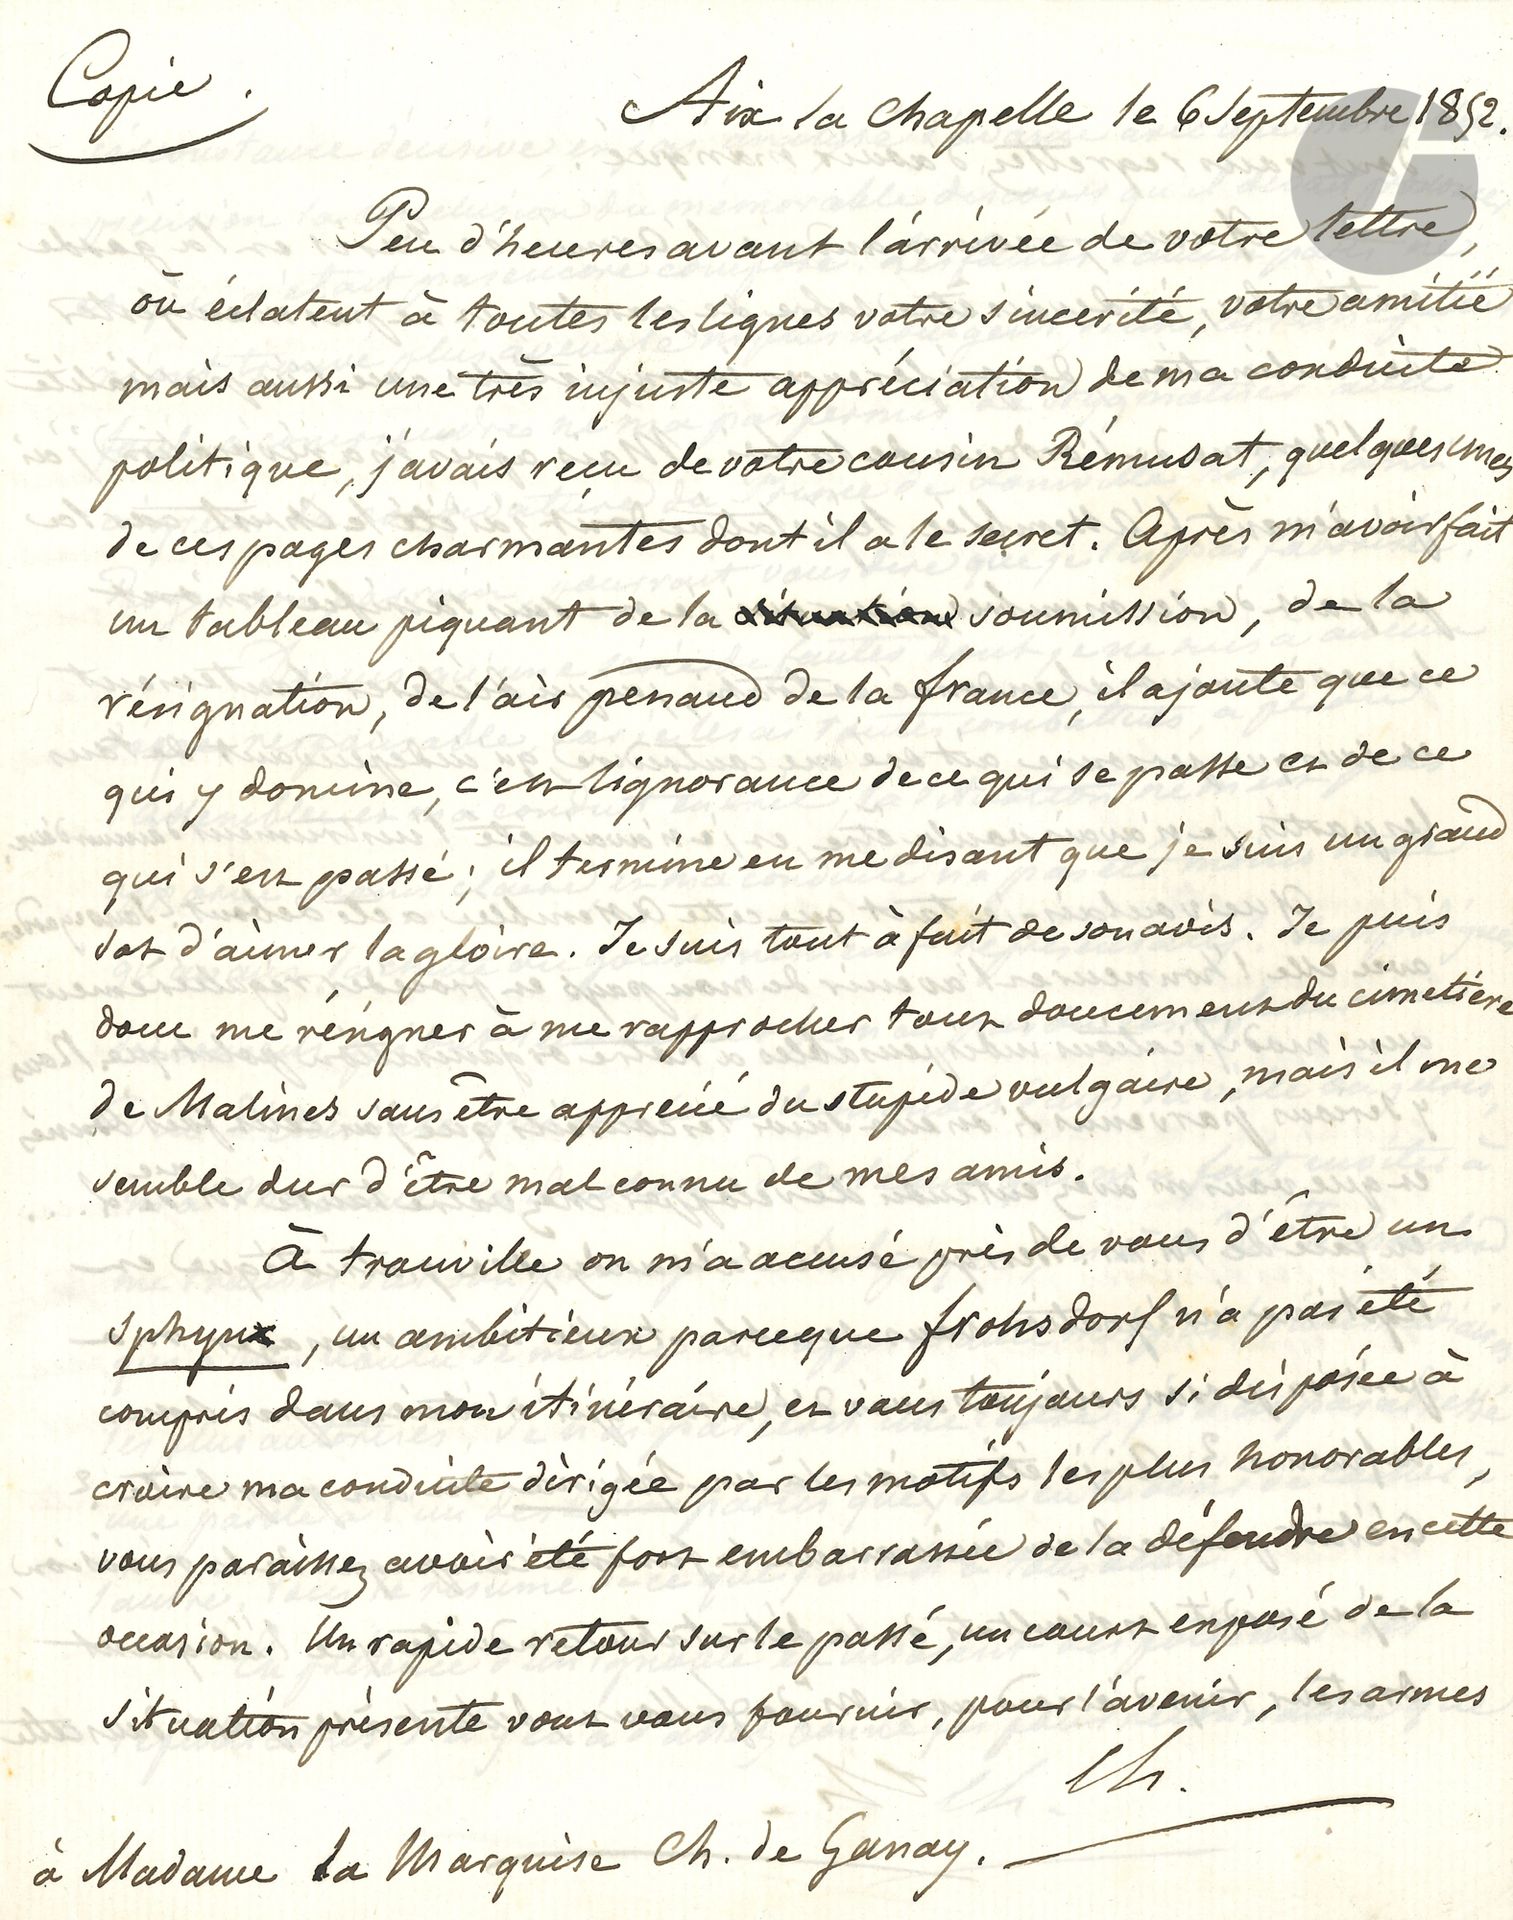 Copie.
Aix la Chapelle le 6 Septembre 1852.
Peu d'heures avant l'arrivée de votre lettre,
où éclatent à toutes les lignes votre sincérité, votre amitié
mais aussi une très injuste appréciation de ma conduite
politique, j'avais reçu de votre cousin Rémusat, quelques unes
de ces pages charmantes dont il a le secret. Après m'avoir fait
un tableau piquant de la situation soumission, de la
résignation, de l'air penaud de la france, il ajoute que ce
qui y domine, c'est l'ignorance de ce qui se passe et de ce
qui s'est passé; il termine en me disant que je suis un grand
sot d'aimer la gloire. Je suis tout à fait de son avis. Je puis
donc me résigner à me rapprocher tout doucement du cimetière
de Malines sans être apprécié du stupide vulgaire, mais il me
semble dur d'être mal connu de mes amis.
À trouville on m'a accusé près de vous d'être un
sphynx, un ambitieux parceque frohsdorf n'a pas été
compris dans mon itinéraire, et vous toujours si disposée à
croire ma conduite dirigée par les motifs les plus honorables,
vous paraissez avoir été fort embarrassée de la défendre en cette
occasion. Un rapide retour sur le passé, un court exposé de la
situation présente vont vous fournir, pour l'avenir, les armes
Ch.
à Madame la Marquise Ch. de Ganay.